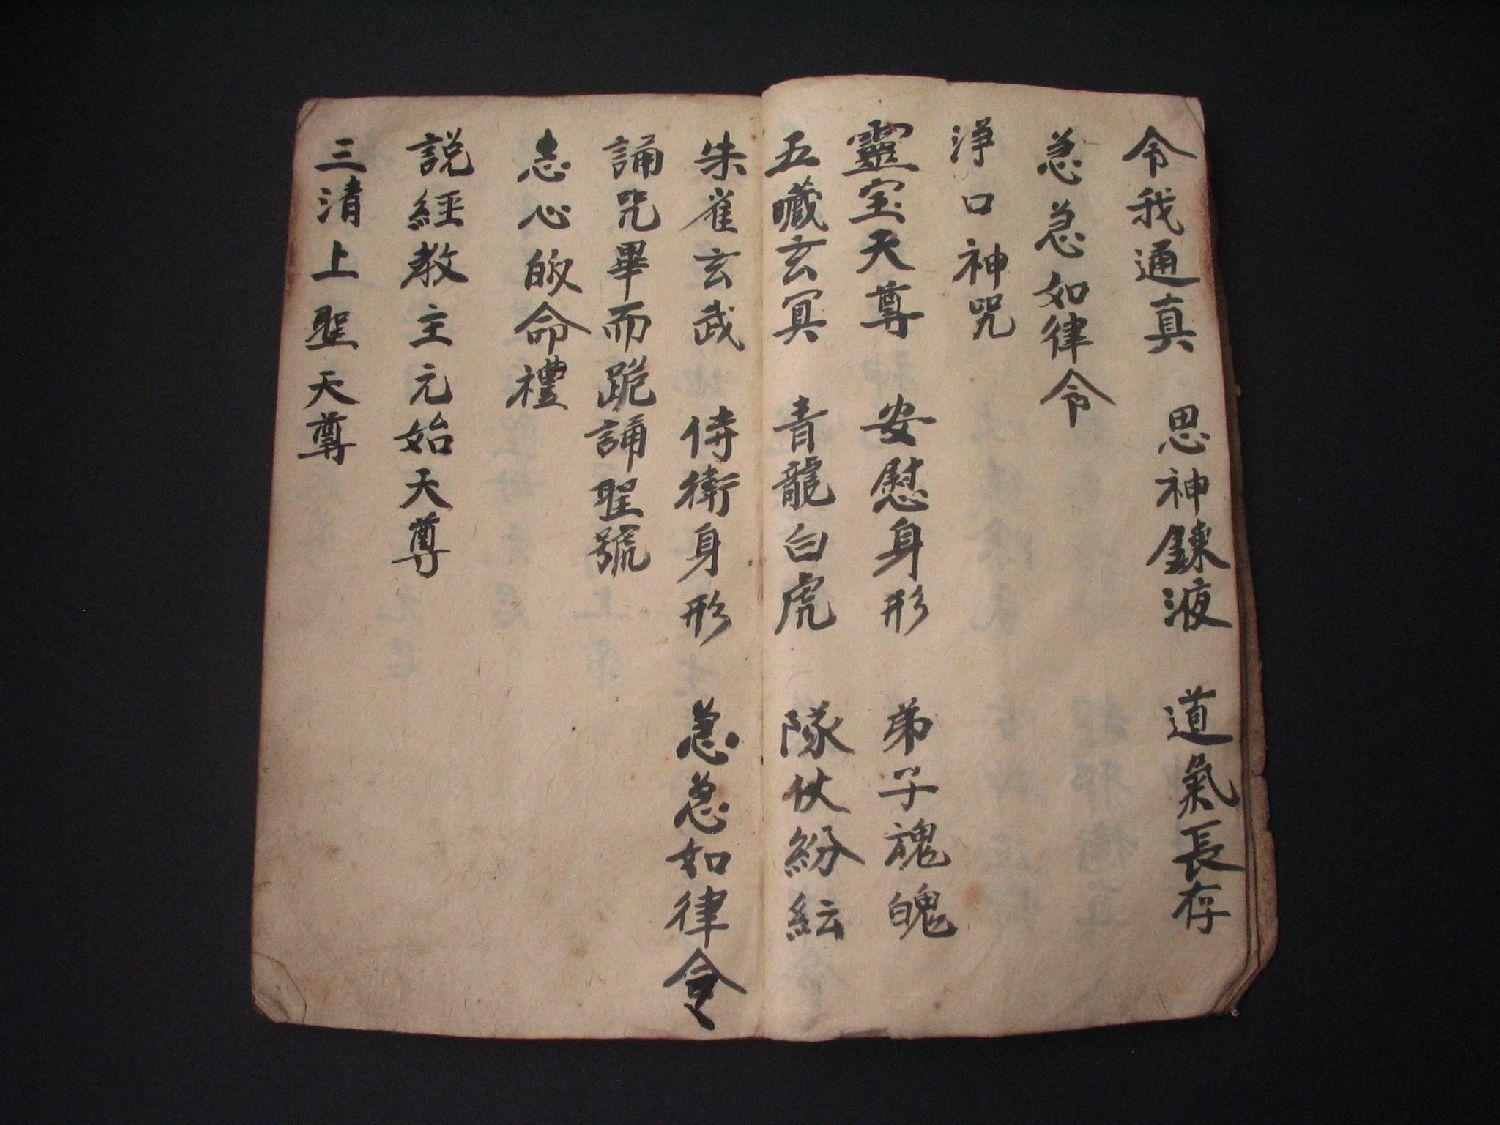 令我通真　思神鍊液　道氣長存
急急如律令
淨口神咒
靈宝天尊　安慰身形　弟子魂魄
五臟玄冥　青龍白虎　隊仗紛紜
朱雀玄武　侍衛身形　急急如律令
誦咒畢而跪誦聖號
志心皈命禮
説經教主元始天尊
三清上聖天尊